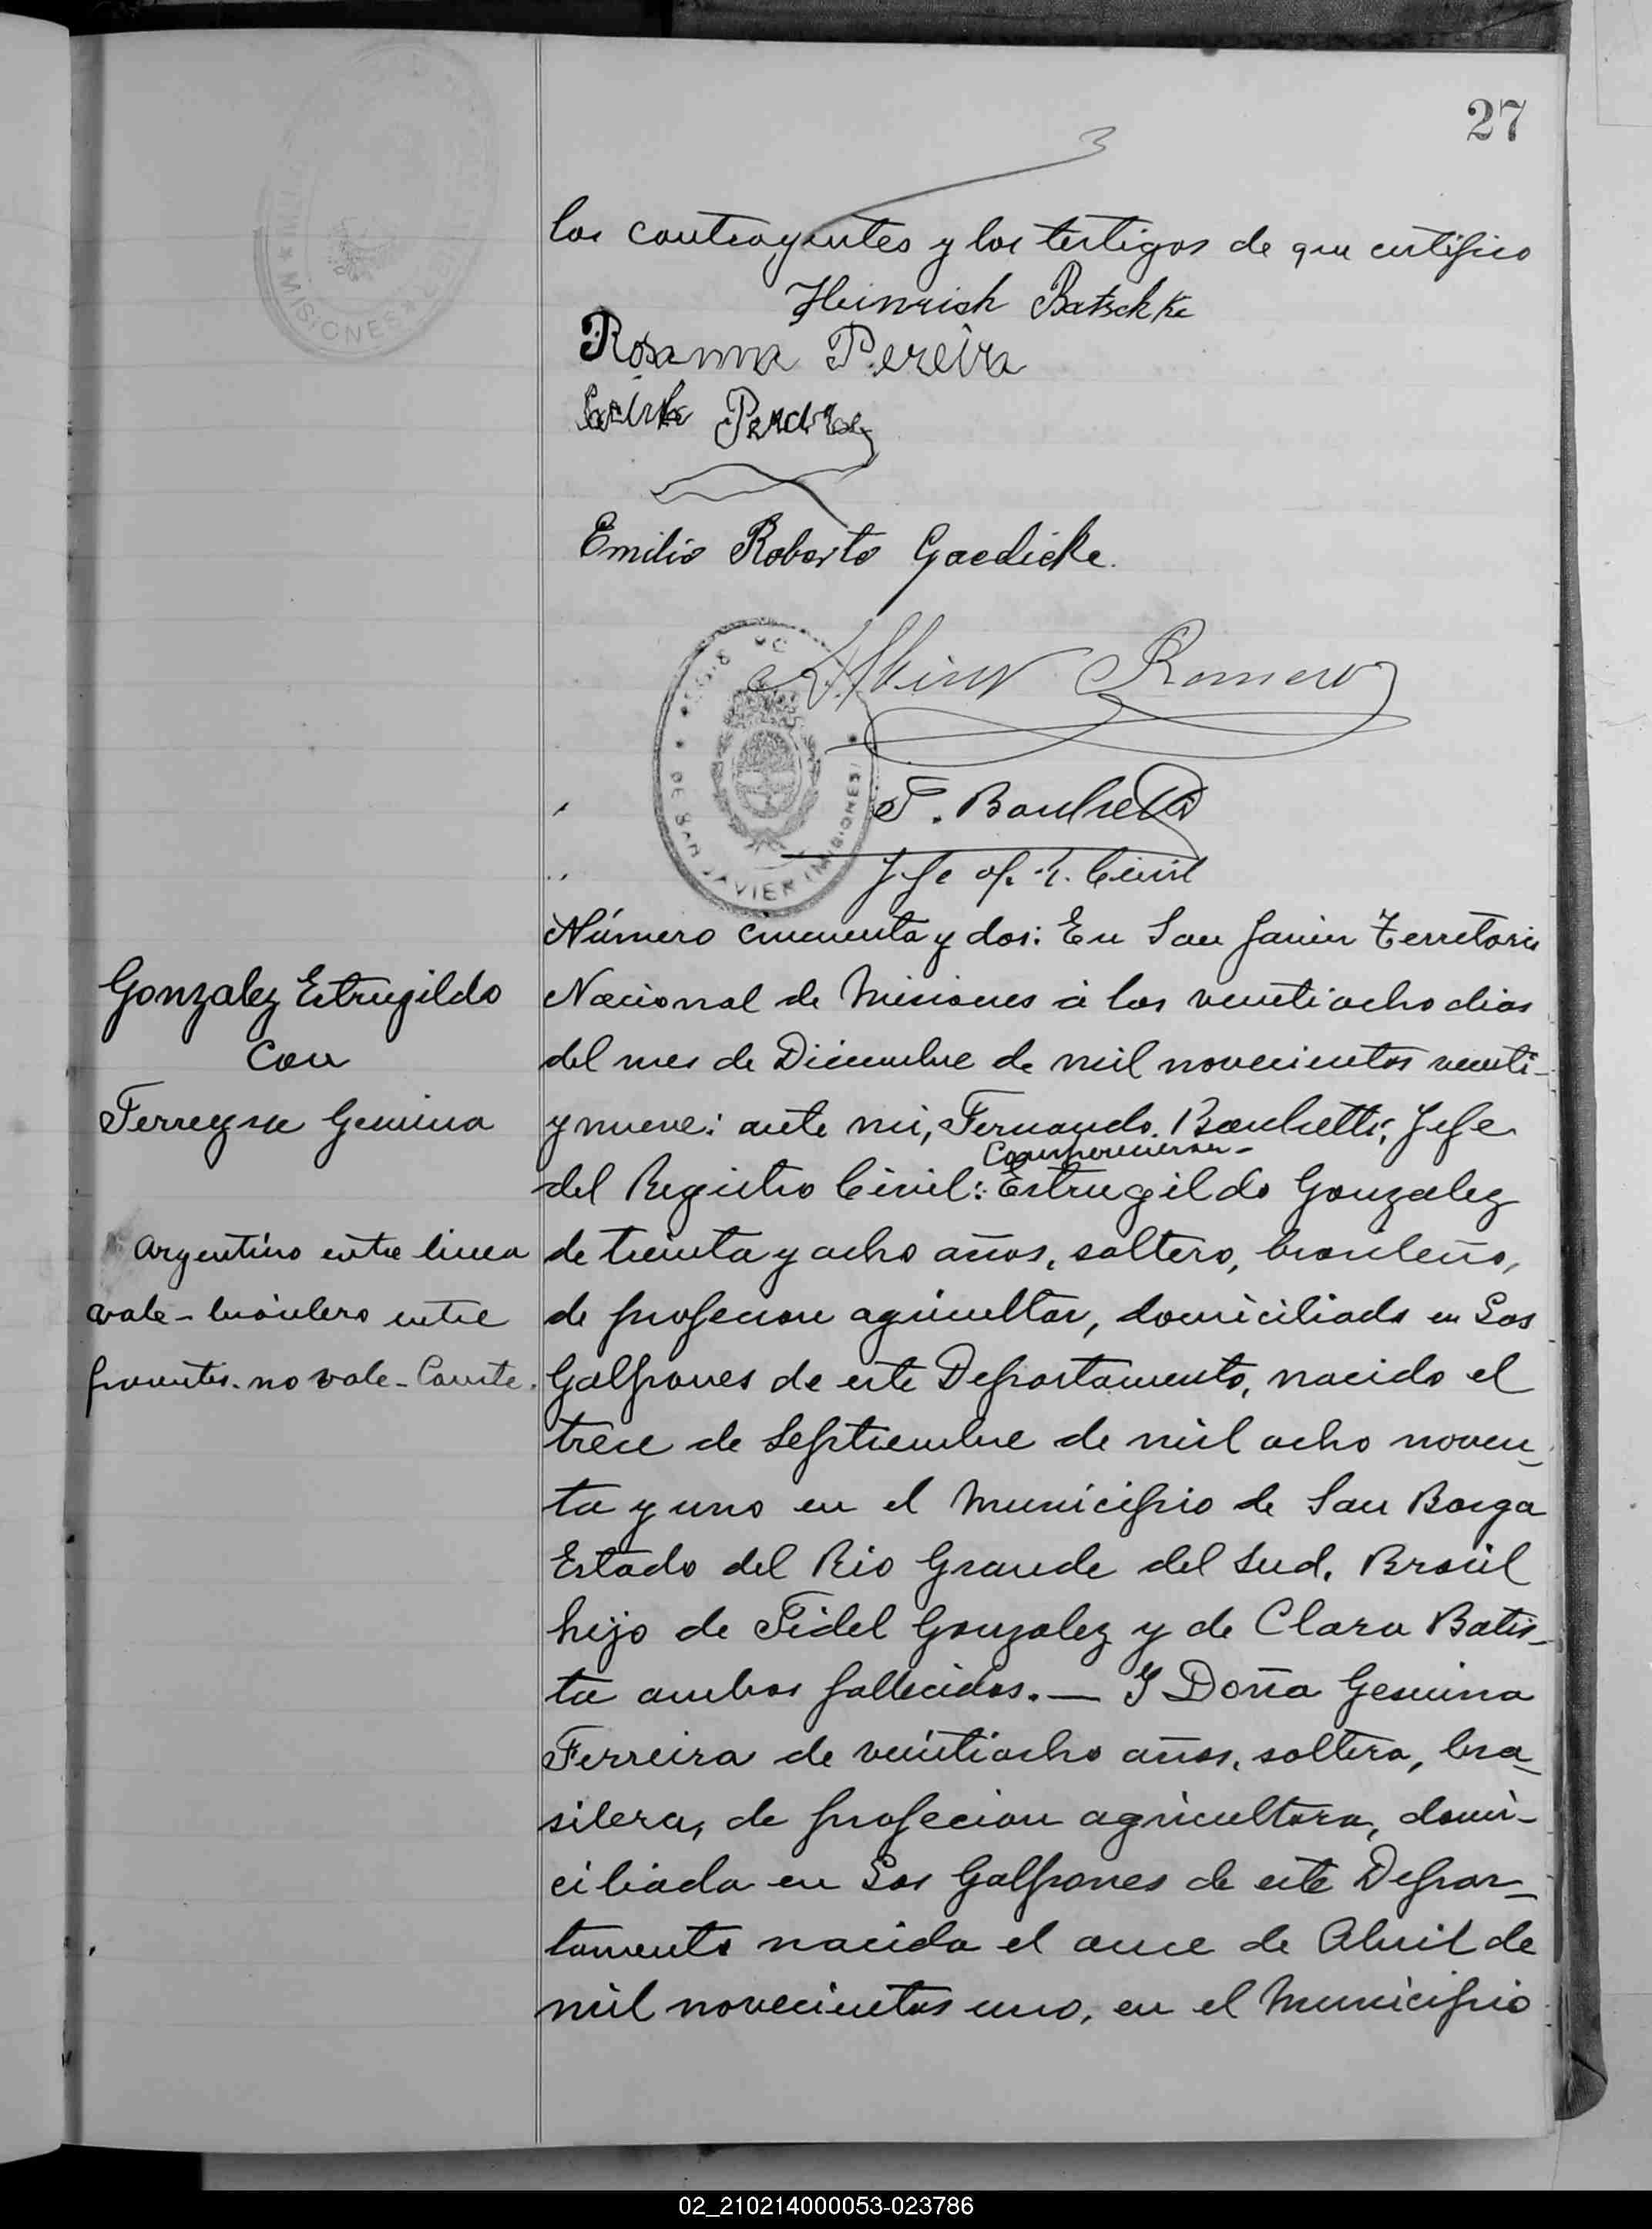 27
los contrayentes y los testigos de que certifico
Heinrich Batschke
Rosanna Pereira
Emilio Roberto Gaedicke.
Albino Romero
DE SAN JAVIER (MISIONES)
MISIONES
F. Bonchetti
Jefe of. R. Civil
Gonzalez Estrugildo
con
Ferreyra Gemina
Argentino entre linea
vale - brasilero entre
parentes. no vale - Conste.
Número cincuenta y dos: En San Javier Territorio
Nacional de Misiones á los veintiocho dias
del mes de Diciembre de mil novecientos veinti-
y nueve: ante mi, Fernando Bonchetti, Jefe
comparecieron-
del Registro Civil: Estrugildo Gonzalez
de treinta y ocho años, soltero, brasileño,
de profecion agricultor, domiciliado en Los
Galpones de este Departamento, nacido el
trece de Septiembre de mil ocho noven-
ta y uno en el Municipio de San Borga
Estado del Rio Grande del Sud, Brasil
hijo de Fidel Gonzalez y de Clara Batis-
ta ambos fallecidos. — Y Doña Gemina
Ferreira de veintiocho años, soltera, bra-
silera, de profecion agricultora, domi-
ciliada en Los Galpones de este Depar-
tamento nacida el once de Abril de
mil novecientos uno, en el Municipio
02_210214000053-023786